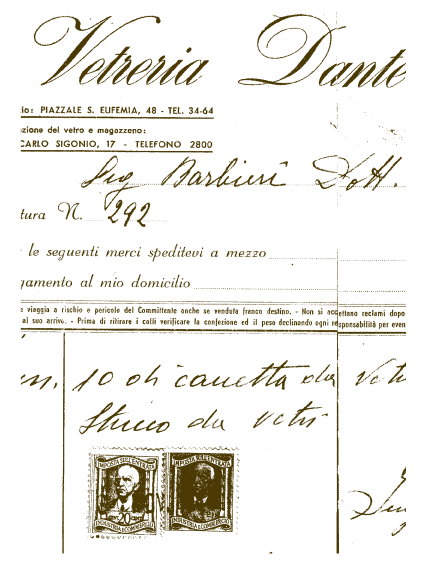 Vetreria Dante
io: PIAZZALE S. EUFEMIA, 48 - TEL. 34-64
zione del vetro e magazzeno:
CARLO SIGONIO, 17 - TELEFONO 2800
Sig Barbieri Dott.
tura N. 292
le seguenti merci speditevi a mezzo
gamento al mio domicilio
e viaggia a rischio e pericolo del Committente anche se venduta franco destino. - Non si accettano reclami dopo
al suo arrivo. - Prima di ritirare i colli verificare la confezione ed il peso declinando ogni responsabilità per even
10 di canetta da vetr
Stucco da vetri
IMPOSTA SULL'ENTRATA IMPOSTA SULL'ENTRATA
20
INDUSTRIA E COMMERCIO INDUSTRIA E COMMERCIO